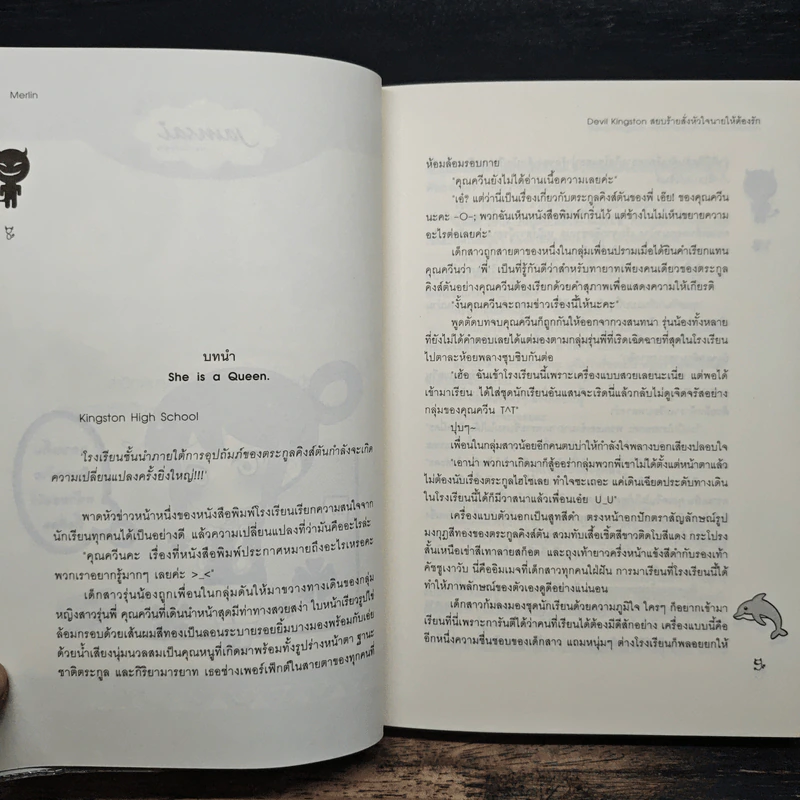 Merlin
บทนำ
She is a Queen.
Kingston High School
'โรงเรียนชั้นนำภายใต้การอุปถัมภ์ของตระกูลคิงส์ตันกำลังจะเกิด
ความเปลี่ยนแปลงครั้งยิ่งใหญ่!!!'
พาดหัวข่าวหน้าหนึ่งของหนังสือพิมพ์โรงเรียนเรียกความสนใจจาก
นักเรียนทุกคนได้เป็นอย่างดี แล้วความเปลี่ยนแปลงที่ว่ามันคืออะไรล่ะ
"คุณควีนคะ เรื่องที่หนังสือพิมพ์ประกาศหมายถึงอะไรเหรอคะ
พวกเราอยากรู้มากๆ เลยค่ะ >_<"
เด็กสาวรุ่นน้องถูกเพื่อนในกลุ่มดันให้มาขวางทางเดินของกลุ่ม
หญิงสาวรุ่นพี่ คุณควีนที่เดินนำหน้าสุดมีท่าทางสวยสง่า ใบหน้าเรียวรูปไข่
ล้อมกรอบด้วยเส้นผมสีทองเป็นลอนระบายรอยยิ้มบางมองพร้อมกับเอ่ย
ด้วยน้ำเสียงนุ่มนวลสมเป็นคุณหนูที่เกิดมาพร้อมทั้งรูปร่างหน้าตา ฐานะ
ชาติตระกูล และกิริยามารยาท เธอช่างเพอร์เฟ็กต์ในสายตาของทุกคนที่
Devil Kingston สยบร้ายสั่งหัวใจนายให้ต้องรัก
ห้อมล้อมรอบกาย
"คุณควีนยังไม่ได้อ่านเนื้อความเลยค่ะ"
"เอ๋? แต่ว่านี่เป็นเรื่องเกี่ยวกับตระกูลคิงส์ตันของพี่ เอ๊ย! ของคุณควีน
นะคะ -O-; พวกฉันเห็นหนังสือพิมพ์เกริ่นไว้ แต่ข้างในไม่เห็นขยายความ
อะไรต่อเลยค่ะ"
เด็กสาวถูกสายตาของหนึ่งในกลุ่มเพื่อนปรามเมื่อได้ยินคำเรียกแทน
คุณควีนว่า 'พี่' เป็นที่รู้กันดีว่าสำหรับทายาทเพียงคนเดียวของตระกูล
คิงส์ตันอย่างคุณควีนต้องเรียกด้วยคำสุภาพเพื่อแสดงความให้เกียรติ
"งั้นคุณควีนจะถามข่าวเรื่องนี้ให้นะคะ"
พูดตัดบทจบคุณควีนก็ถูกกันให้ออกจากวงสนทนา รุ่นน้องทั้งหลาย
ที่ยังไม่ได้คำตอบเลยได้แต่มองตามกลุ่มรุ่นพี่ที่เริดเฉิดฉายที่สุดในโรงเรียน
ไปตาละห้อยพลางซุบซิบกันต่อ
"เฮ้อ ฉันเข้าโรงเรียนนี้เพราะเครื่องแบบสวยเลยนะเนี่ย แต่พอได้
เข้ามาเรียน ได้ใส่ชุดนักเรียนอันแสนจะเริดนี่แล้วกลับไม่ดูเจิดจรัสอย่าง
กลุ่มของคุณควีน T^T"
ปุบๆ~
เพื่อนในกลุ่มสาวน้อยอีกคนตบบ่าให้กำลังใจพลางบอกเสียงปลอบใจ
"เอาน่า พวกเราเกิดมาก็สู้ออร่ากลุ่มพวกพี่เขาไม่ได้ตั้งแต่หน้าตาแล้ว
ไม่ต้องนับเรื่องตระกูลไฮโซเลย ทำใจซะเถอะ แค่เดินเฉียดประดับทางเดิน
ในโรงเรียนนี้ได้ก็มีวาสนาแล้วเพื่อนเอ๋ย U_U"
เครื่องแบบตัวนอกเป็นสูทสีดำ ตรงหน้าอกปักตราสัญลักษณ์รูป
มงกุฎสีทองของตระกูลคิงส์ตัน สวมทับเสื้อเชิ้ตสีขาวติดโบสีแดง กระโปรง
สั้นเหนือเข่าสีเทาลายสก็อต และถุงเท้ายาวครึ่งหน้าแข้งสีดำกับรองเท้า
คัชชูเงาวับ นี่คืออิมเมจที่เด็กสาวทุกคนใฝ่ฝัน การมาเรียนที่โรงเรียนนี้ได้
ทำให้ภาพลักษณ์ของตัวเองดูดีอย่างแน่นอน
เด็กสาวก้มลงมองชุดนักเรียนด้วยความภูมิใจ ใครๆ ก็อยากเข้ามา
เรียนที่นี่เพราะการันตีได้ว่าคนที่เรียนได้ต้องมีดีสักอย่าง เครื่องแบบนี้คือ
อีกหนึ่งความชื่นชอบของเด็กสาว แถมหนุ่มๆ ต่างโรงเรียนก็พลอยยกให้